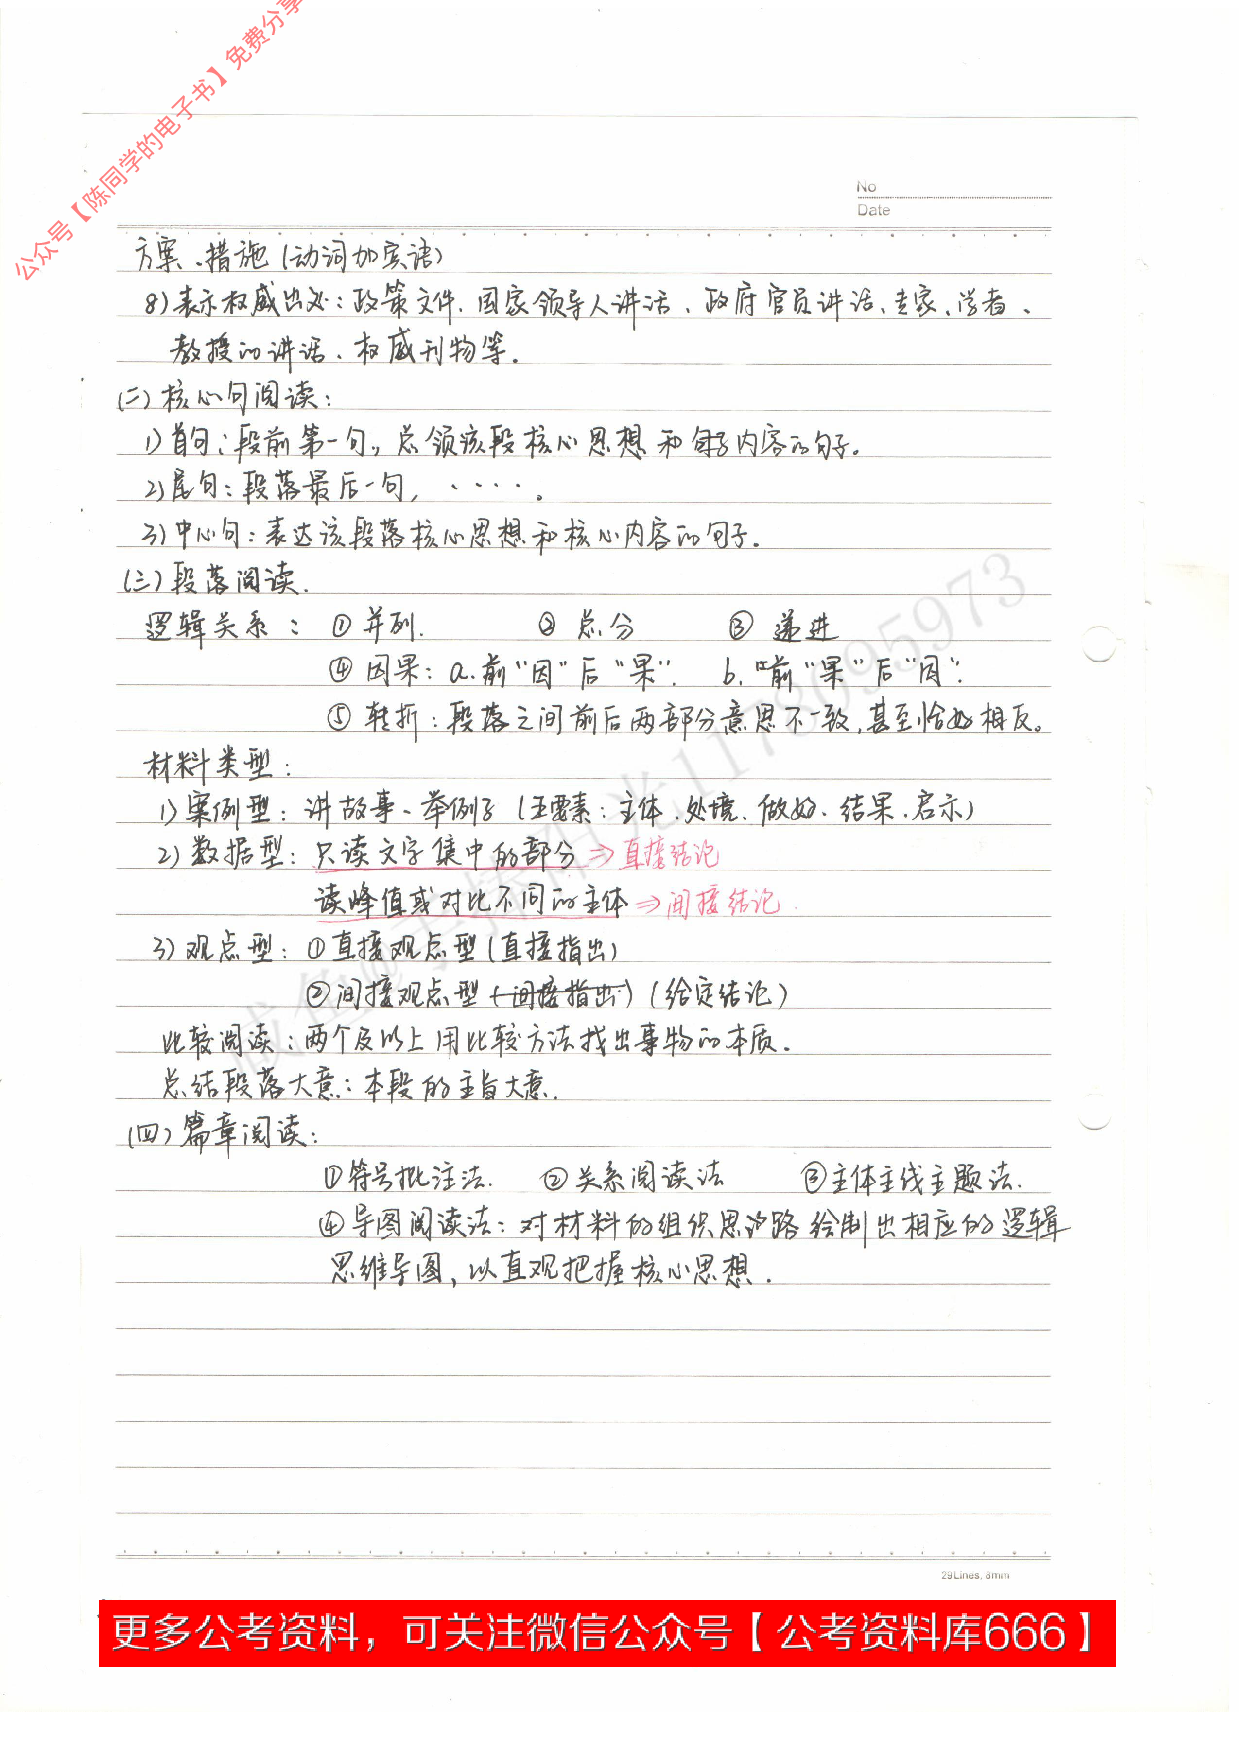 公众号【陈同学的电子书】免费分享
No
Date
方案、措施(动词加宾语)
8)表示权威出处:政策文件、国家领导人讲话、政府官员讲话、专家、学者、
教授的讲话、权威刊物等.
(二)核心句阅读:
1)首句:段前第一句,总领该段核心思想和内容的句子。
2)尾句:段落最后一句,·····。
3)中心句:表达该段落核心思想和核心内容的句子.
(三)段落阅读.
逻辑关系: ①并列. ②总分 ③递进
④因果:a.前“因”后“果”. b.前“果”后“因”.
⑤转折:段落之间前后两部分意思不一致,甚至恰好相反。
材料类型:
1)案例型:讲故事、举例子(五要素:主体、处境、做好、结果、启示)
2)数据型:只读文字集中的部分⇒直接结论
读峰值或对比不同的主体⇒间接结论.
3)观点型:①直接观点型(直接指出)
②间接观点型(间接指出)(给定结论)
比较阅读:两个及以上用比较方法找出事物的本质.
总结段落大意:本段的主旨大意.
(四)篇章阅读:
①符号批注法. ②关系阅读法 ③主体主线主题法.
④导图阅读法:对材料的组织思路绘制出相应的逻辑
思维导图,以直观把握核心思想.
咸鱼@手捧阳光1178095973
29Lines, 8mm
更多公考资料,可关注微信公众号【公考资料库666】